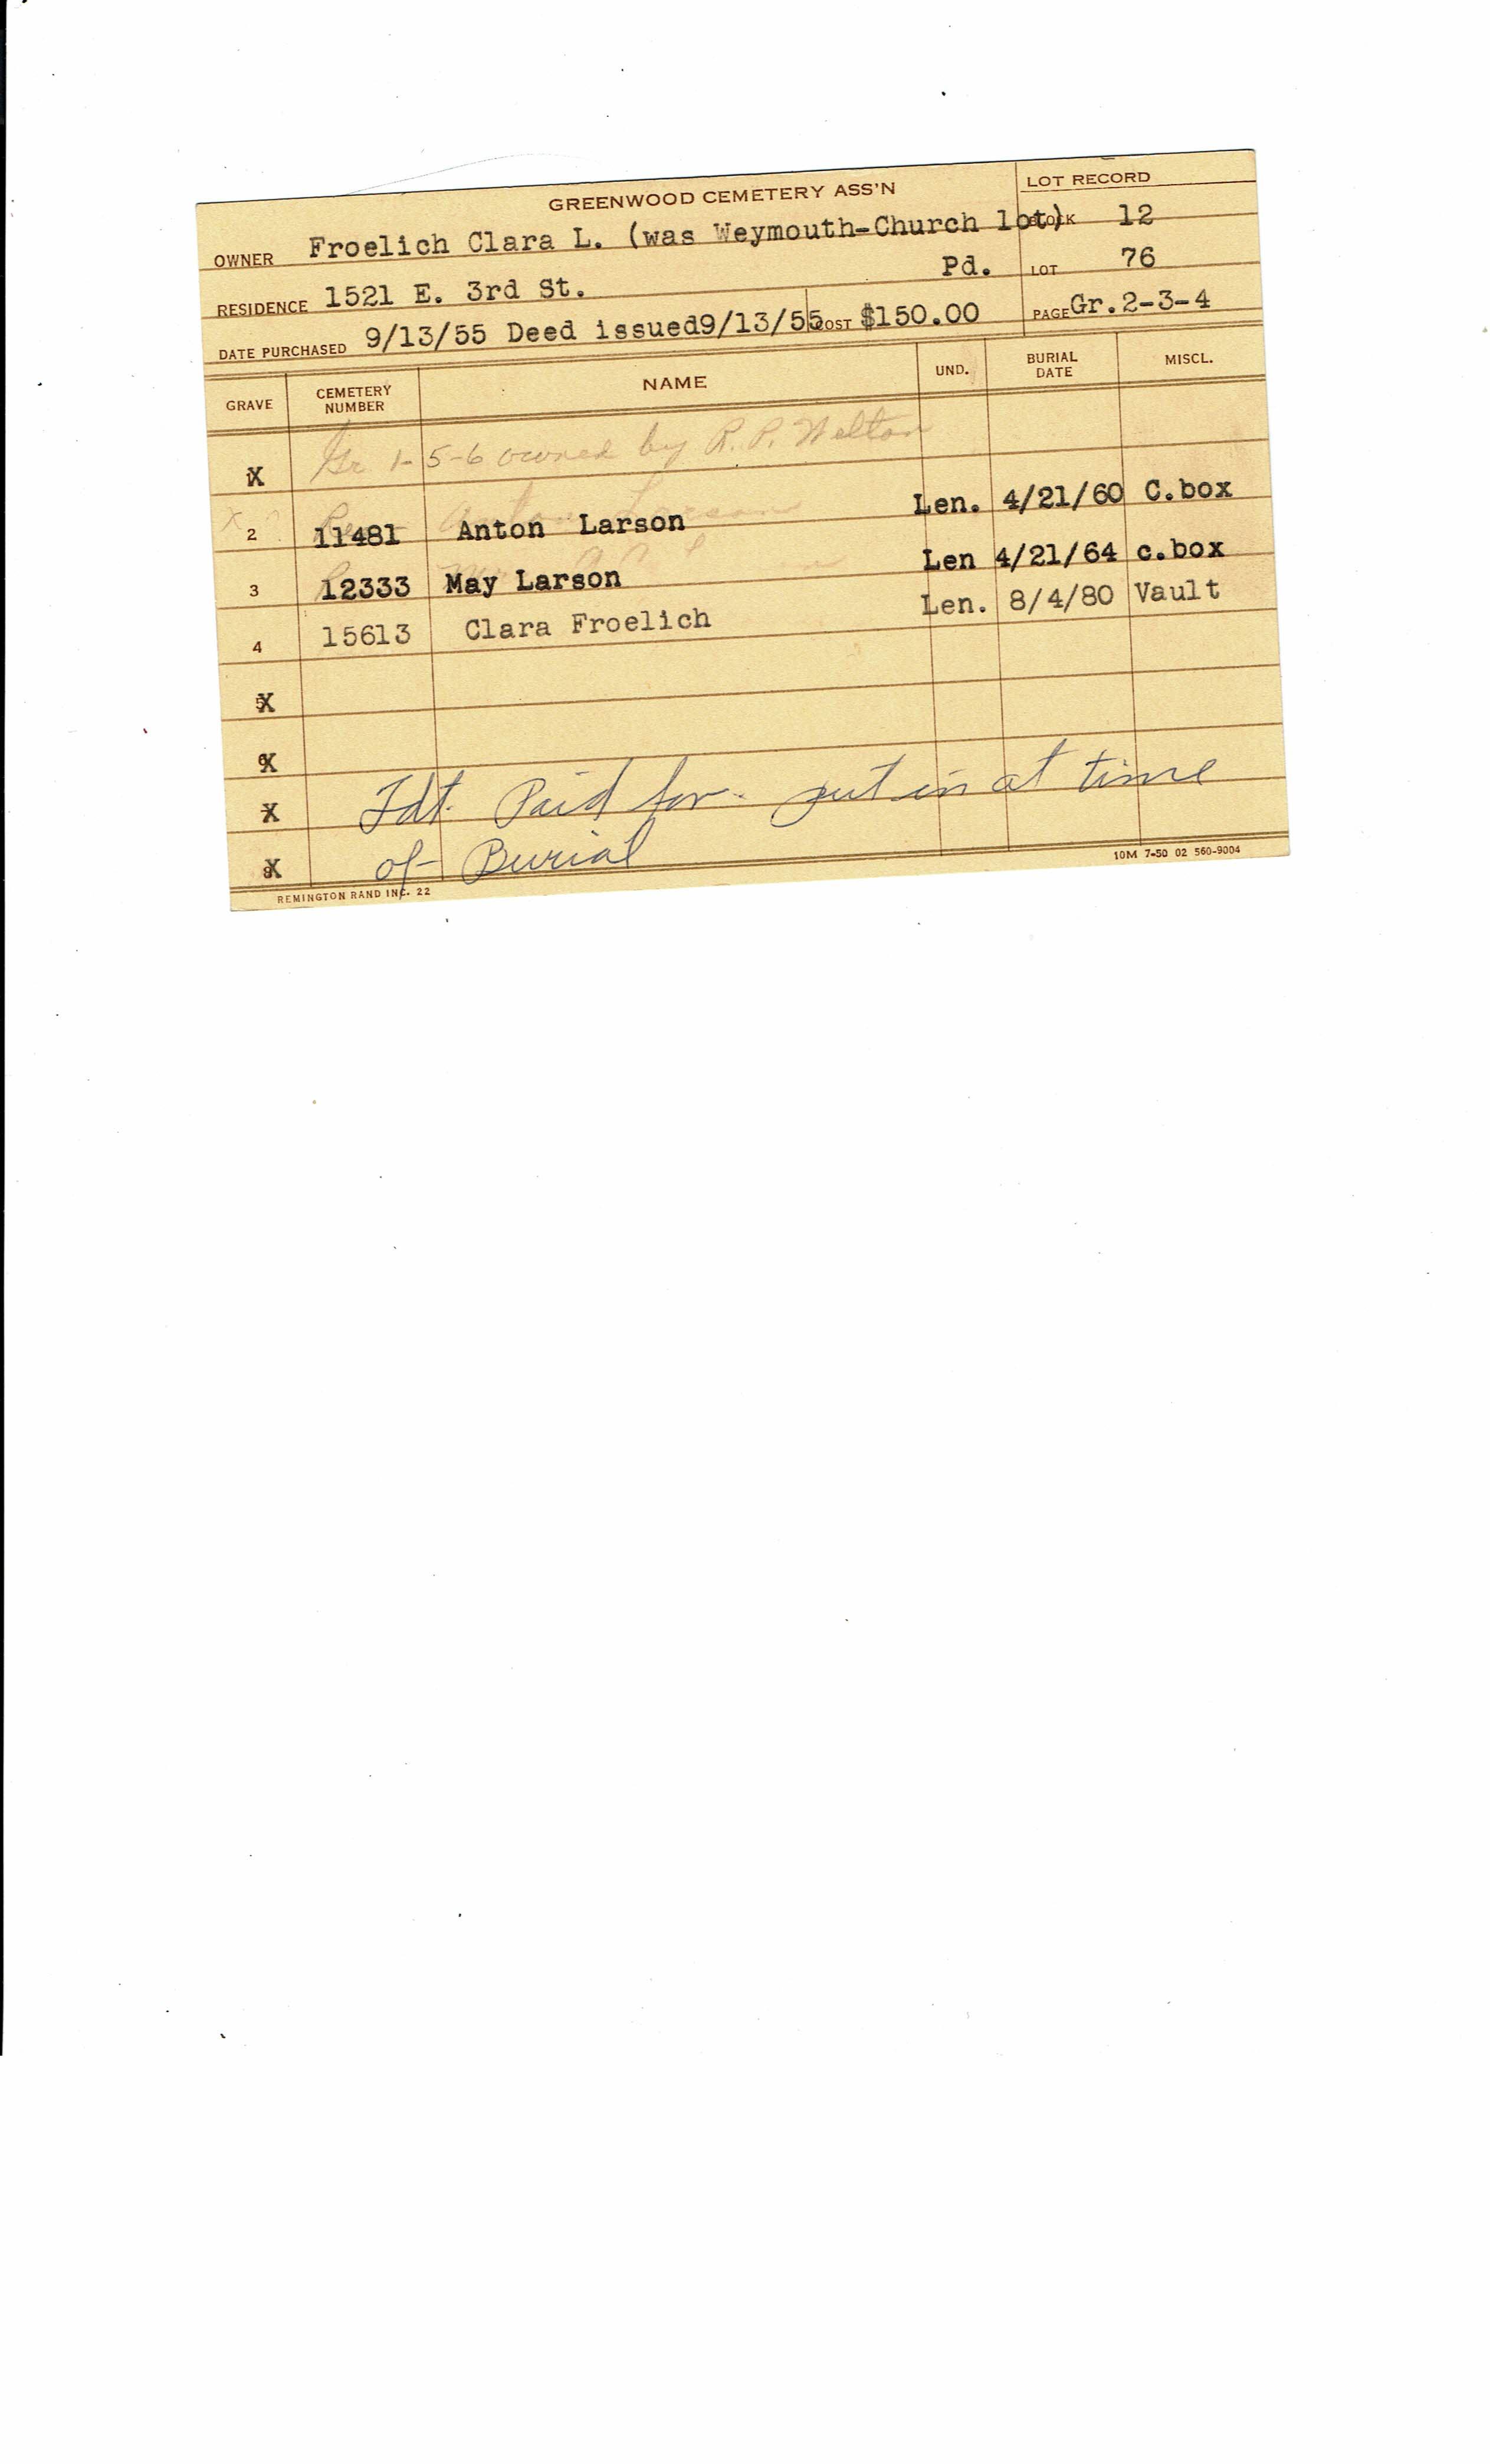 GREENWOOD CEMETERY ASS'N
LOT RECORD
OWNER Froelich Clara L. (was Weymouth-Church lot) BLOCK 12
RESIDENCE 1521 E. 3rd St. Pd. LOT 76
DATE PURCHASED 9/13/55 Deed issued9/13/55 COST $150.00 PAGE Gr.2-3-4
GRAVE CEMETERY NUMBER NAME UND. BURIAL DATE MISCL.
X Gr 1-5-6 owned by R. P. Welton
2 11481 Anton Larson Len. 4/21/60 C.box
3 12333 May Larson Len 4/21/64 c.box
4 15613 Clara Froelich Len. 8/4/80 Vault
X
X
X Fdt. Paid for - put in at time
X of Burial
REMINGTON RAND INC. 22 10M 7-50 02 560-9004